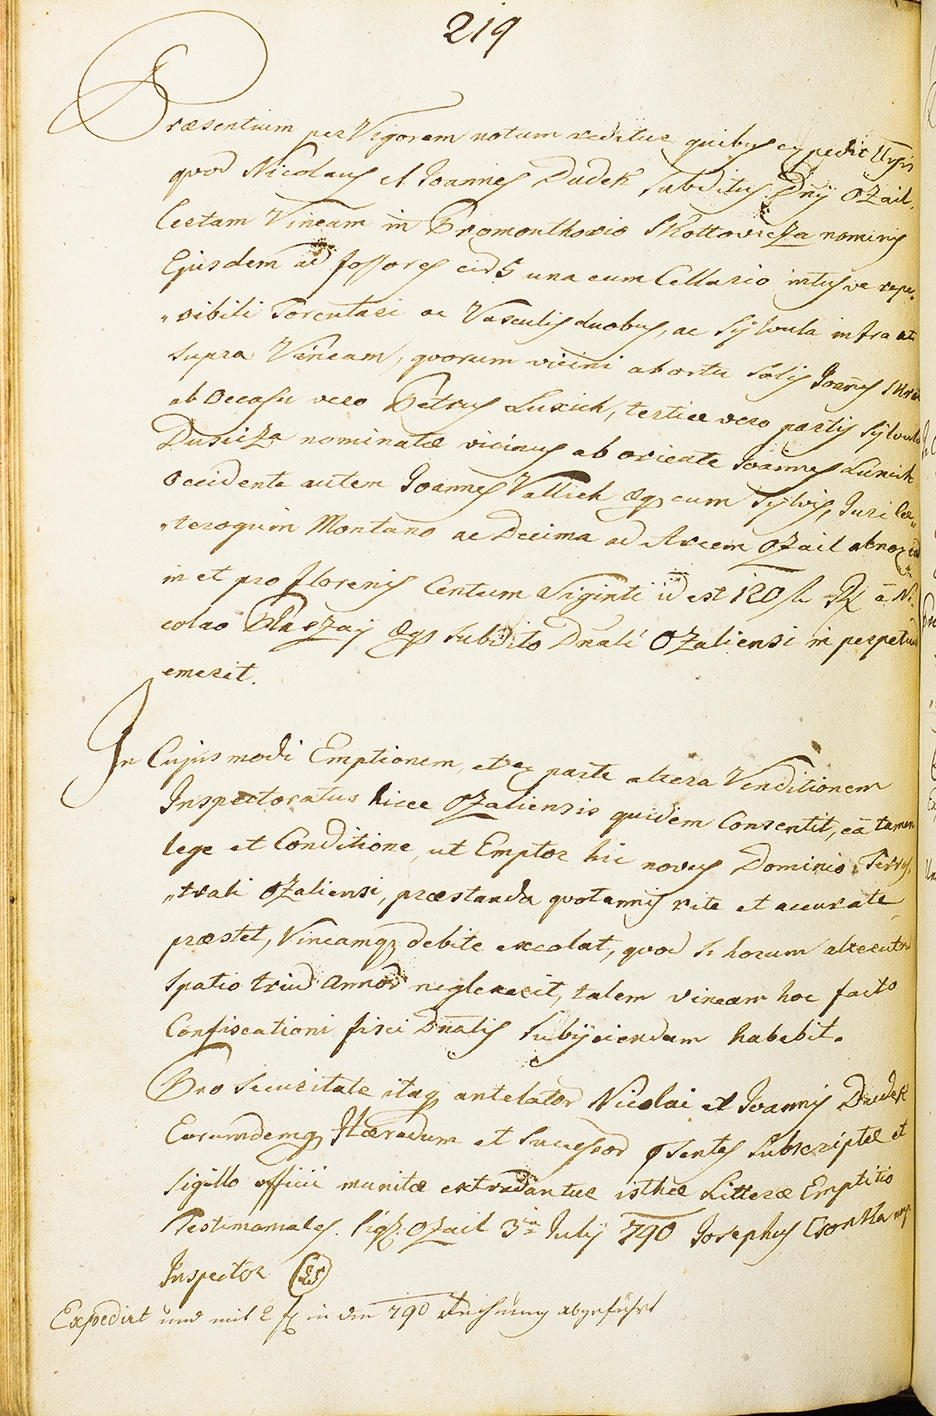 219
Præsentium per Vigorem notum redditur quibus expedit Usis
quod Nicolaus et Joannes Dudek Subditus Dnij Ozail.
Certam Vineam in Promonthorio Skottovicza nominis
Ejusdem ad fossores una cum Cellario intus ve repe„
„ribili Torculari ac Vasculis duobus, ac Sylvula infra et
Supra Vineam, quorum vicini ab ortu Solis Joannes
ab Occasu vero Petrus Lukich, tertiæ vero partis Sylvulæ
nominatæ vicinus ab oriente Joannes Lukich
Occidente autem Joannes Vallich æq cum Sylvis, Juri Cæ„
„teroquin Montano ac Decima ad Arcem Ozail
in et pro florenis Centum Viginti id est 120 fl Rx à Ni„
colao æq Subdito Dnali Ozaliensi in perpetuum
emerit.
In Cujusmodi Emptionem, et ex parte altera Venditionem
Inspectoratus hicce Ozaliensis quidem Consentit, eâ tamen
lege et Conditione, ut Emptor hic novus Dominio Terres„
„trali Ozaliensi, præstanda quotannis rite et accurate
præstet, Vineamqz debite excolat, quod si horum alterutrum
Spatio triũ annoR neglexerit, talem vineam hoc facto
Confiscationi fisci Dnalis Subijciendam habebit.
Pro Securitate itaq antelatoR Nicolai et Joannis Dudek
Eorumdemq Hæredum et SuccessoR psentes Subscriptæ et
Sigillo officii munitæ extradantur isthæ Litteræ Emptitio
Testimoniales. Sigz: Ozail 3ia July 790 Josephus
Inspector (LS)
Expedirt und mit 2 fx in der 790 Rechnung abgeführt